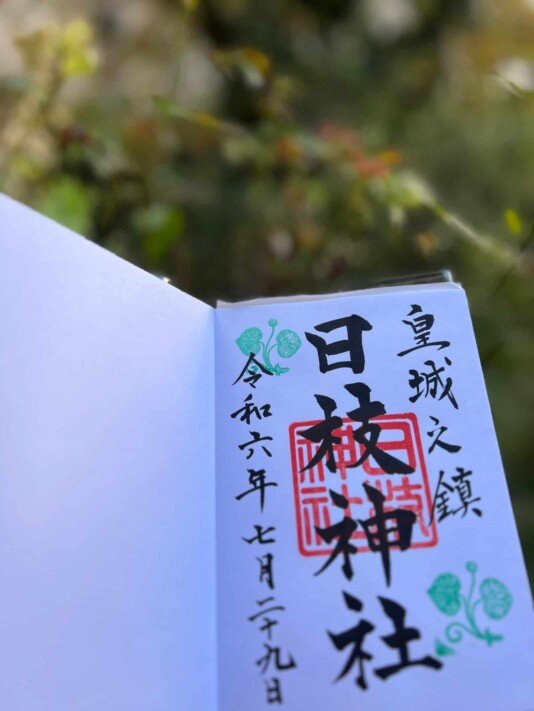 皇城之鎮
日枝神社
日枝神社
令和六年七月二十九日